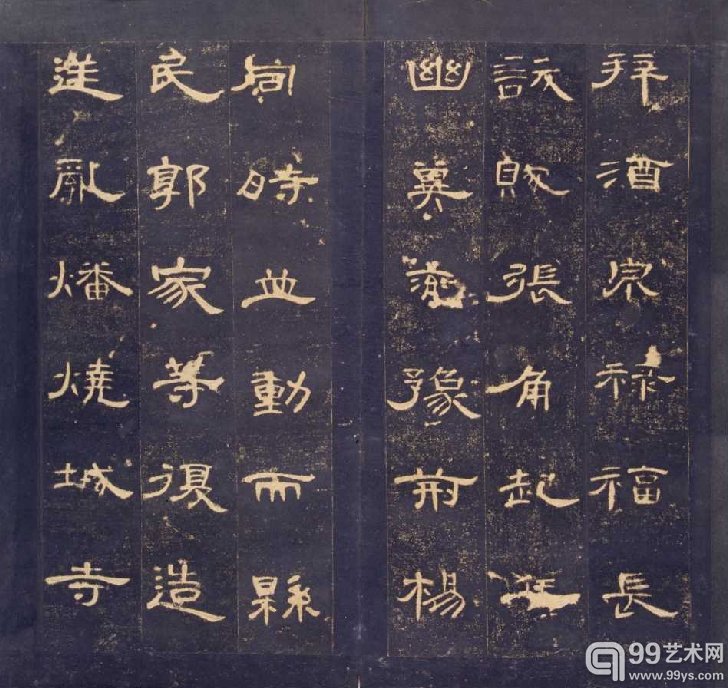 拜酒泉祿福長
訞賊張角起
幽冀兖豫荊楊
同時並動而縣
民郭家等復造
逆亂燔燒城寺
99艺术网
www.99ys.com